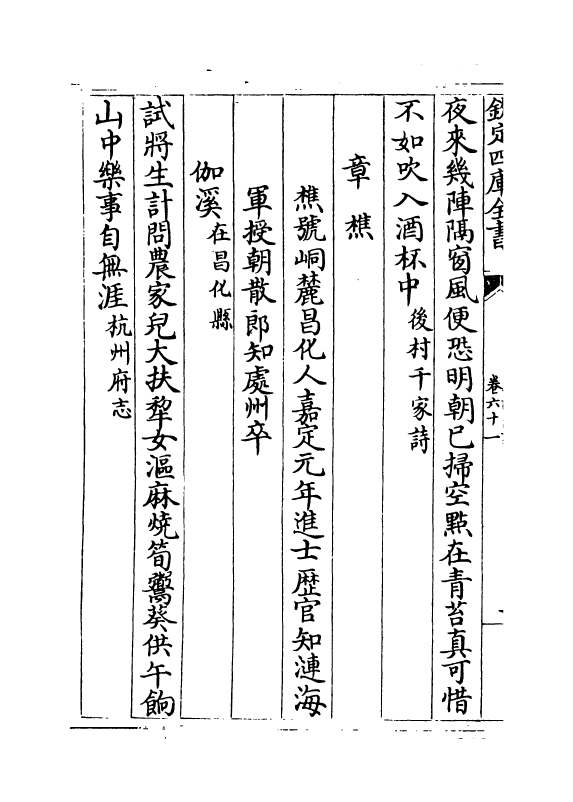 欽定四庫全書
卷六十一
夜來幾陣隔窗風便恐明朝已掃空點在青苔真可惜
不如吹入酒杯中後村千家詩
章樵
樵號峒麓昌化人嘉定元年進士歴官知漣海
軍授朝散郎知處州卒
伽溪在昌化縣
試將生計問農家兒大扶犂女漚麻燒筍鬻葵供午餉
山中樂事自無涯杭州府志